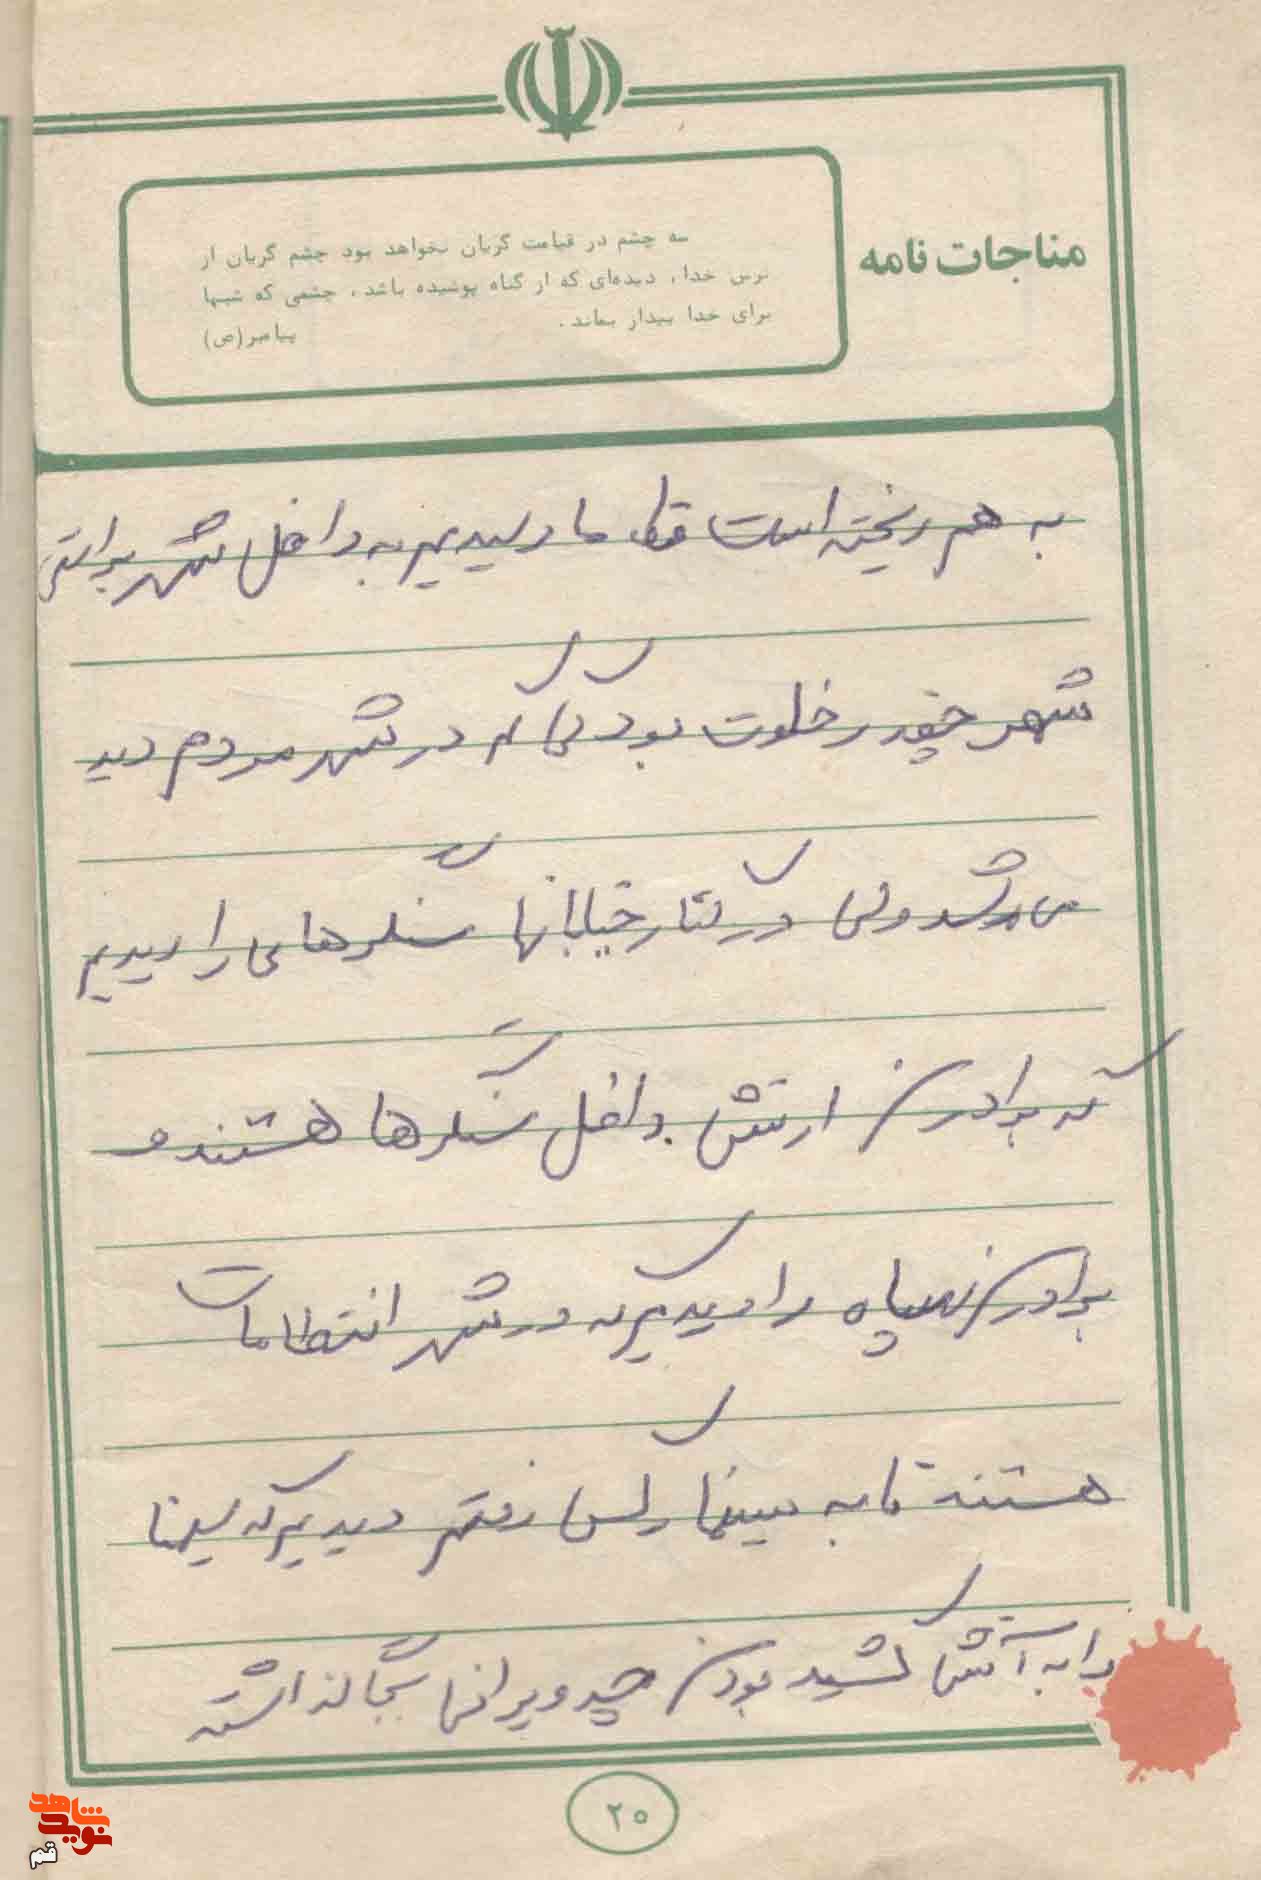 مناجات نامه
سه چشم در قیامت گریان نخواهد بود چشم گریان از
ترس خدا، دیده‌ای که از گناه پوشیده باشد، چشمی که شبها
برای خدا بیدار بماند.
پیامبر(ص)
به هم ریخته است ما رسیدیم به داخل شهر
شهر خلوت بود که در شهر مردم دید
می شد ولی در کنار خیابانها سنگرهای را دیدیم
که برادران ارتش داخل سنگرها هستند و
برادران سپاه را دیدیم که در شهر انتظامات
هستند تا به سینما رکس رفتیم دیدیم که سینما
را به آتش کشیده بودن چه ویرانی بجا گذاشته
۲۰
شاهد
نوید
قم